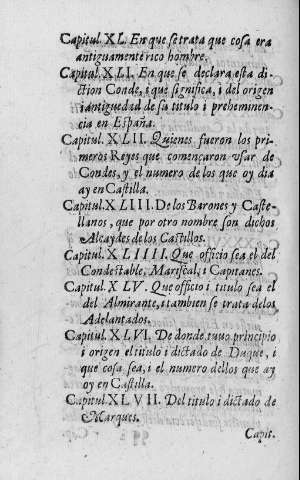 Capitul. XL. En que se trata que cosa era
antiguamente rico hombre.
Capitul. XLI. En que se declara esta di-
ction Conde, i que significa, i del origen
i antiguedad de su titulo i prebeminen-
cia en España.
Capitul. XLII. Quienes fueron los pri-
meros Reyes que començaron vsar de
Condes, y el numero de los que oy dia
ay en Castilla.
Capitul. XLIII. De los Barones y Caste-
llanos, que por otro nombre son dichos
Alcaydes de los Castillos.
Capitul. XLIIII. Que officio sea el del
Condestable, Mariscal, i Capitanes.
Capitul. XLV. Que officio i titulo sea el
del Almirante, i tambien se trata delos
Adelantados.
Capitul. XLVI. De donde tuuo principio
i origen el titulo i dictado de Duque, i
que cosa sea, i el numero dellos que ay
oy en Castilla.
Capitul. XLVII. Del titulo i dictado de
Marques.
Capit.